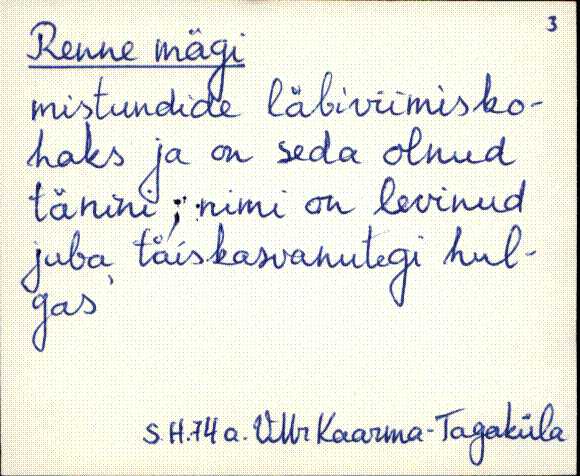 3
Renne mägi
mistundide läbiviimisko-
haks ja on seda olnud
tänini; nimi on levinud
juba täiskasvanutegi hul-
gas'
S.H.74 a. Kaarma-Tagaküla